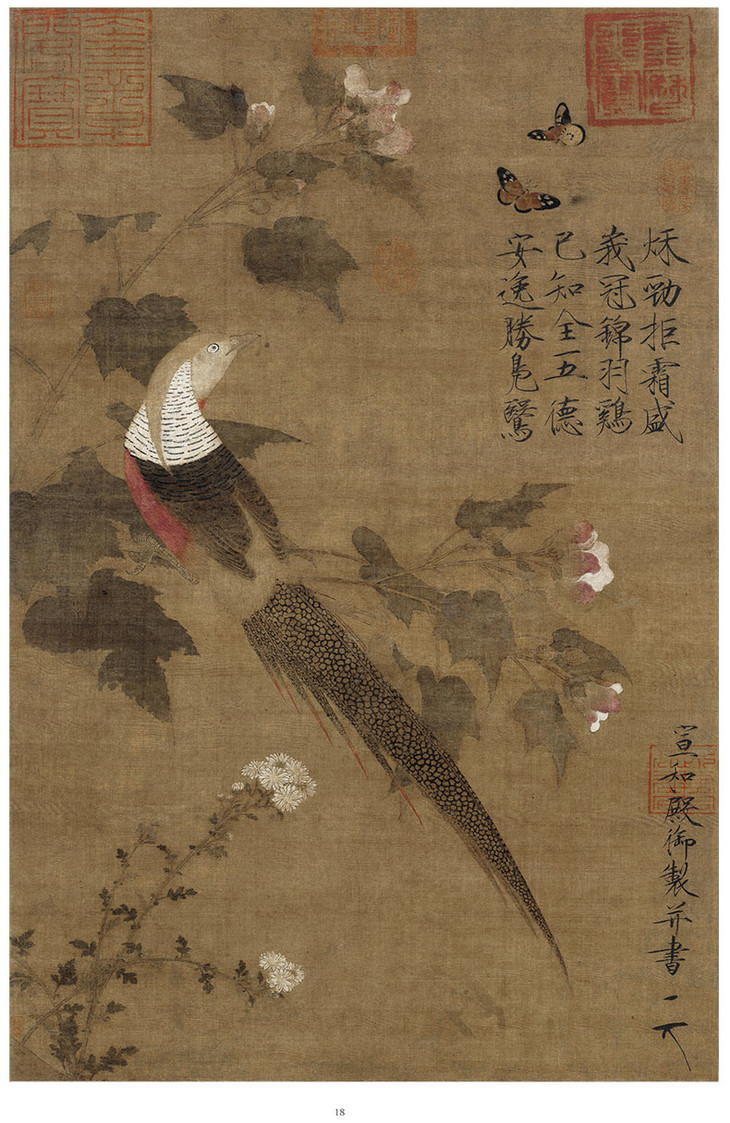 秌勁拒霜盛
峩冠錦羽鷄
已知全五德
安逸勝鳧鷖
宣和殿御製并書
18